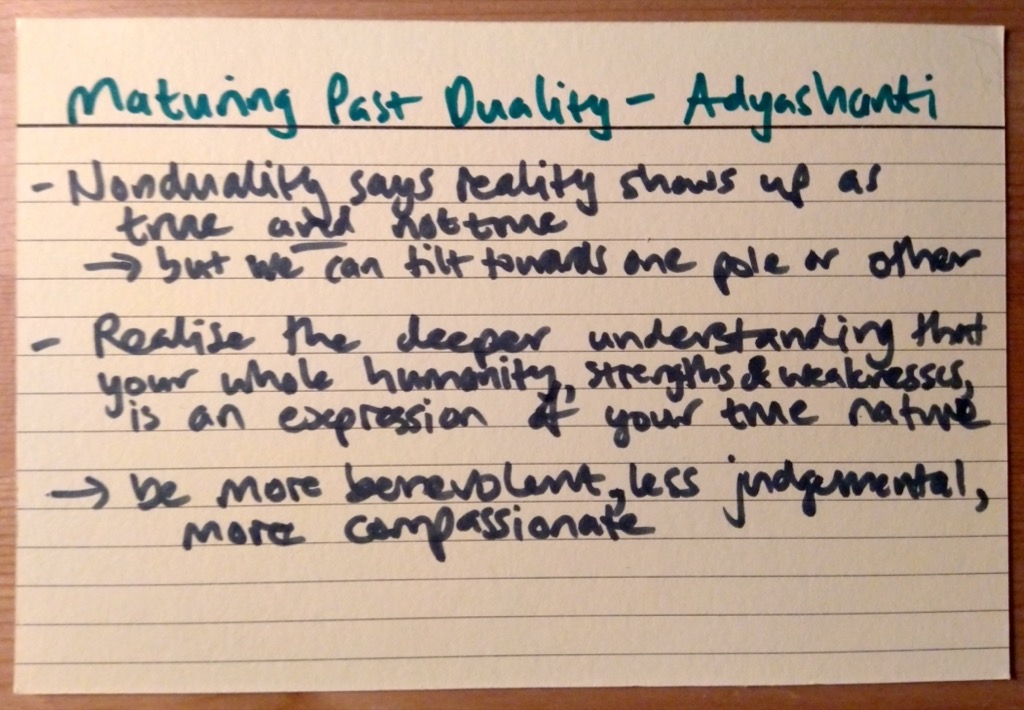 Maturing Past Duality - Adyashanti
- Nonduality says reality shows up as
true and not true
→ but we can tilt towards one pole or other
- Realise the deeper understanding that
your whole humanity, strengths & weaknesses,
is an expression of your true nature
→ be more benevolent, less judgemental,
more compassionate